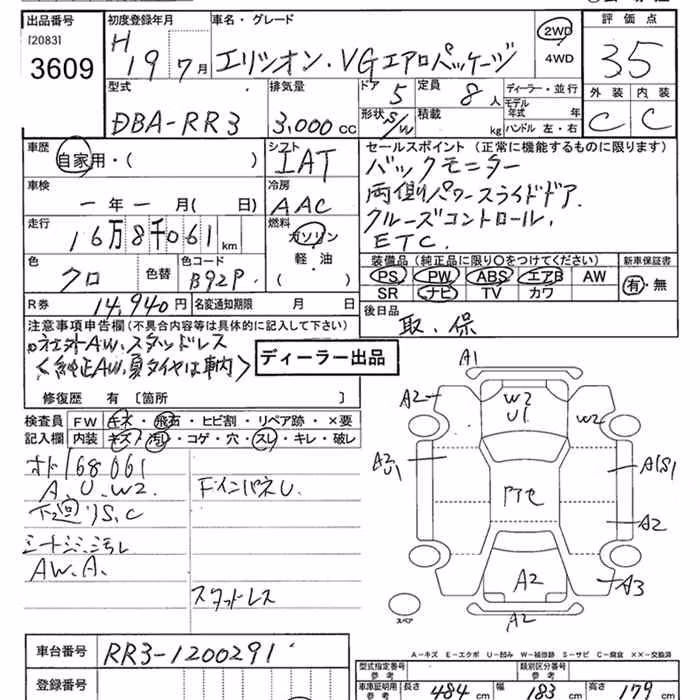 出品番号
[2083]
3609
初度登録年月
H 19 7月
車名・グレード
エリシオン・VGエアロパッケージ
2WD
4WD
評価点
35
外装 内装
C C
型式
DBA-RR3
排気量
3,000cc
ドア
5
定員
8人
形状
S/W
積載
kg
ディーラー・並行
モデル年式 年
ハンドル 左・右
車歴
自家用・( )
シフト
IAT
セールスポイント (正常に機能するものに限ります)
バックモニター
両側パワースライドドア.
クルーズコントロール.
ETC.
車検
一年一月(日)
冷房
AAC
走行
16万8千061km
燃料
ガソリン
軽・油
( )
色
クロ
色替
色コード
B92P.
装備品 (純正品に限り○をつけてください)
PS PW ABS エアB AW
SR ナビ TV カワ
新車保証書
有・無
R券
14,940円
名変通知期限 月 日
後日品
取.保
注意事項申告欄 (不具合内容等は具体的に記入して下さい)
社外AW.スタッドレス
<純正AW.夏タイヤは車内>
ディーラー出品
修復歴 有 [箇所 ]
検査員
記入欄
FW キズ・飛石・ヒビ割・リペア跡・×要
内装 キズ・汚れ・コゲ・穴・スレ・キレ・破レ
オド168061
A.U.W2.
下廻りS.C
シートシミ.汚レ
AW.A.
F.インパネU.
スタットレス
A1
A2
W2
U1
W2
A2
U1
A1S1
A2
A2
A3
A2
スペア
A-キズ E-エクボ U-凹み W-補修跡 S-サビ C-腐食 ××-交換済
車台番号
RR3-1200291
登録番号
型式指定番号
参考
類別区分番号
参考
車庫証明用
参考
長さ 484cm
幅 183cm
高さ 179cm